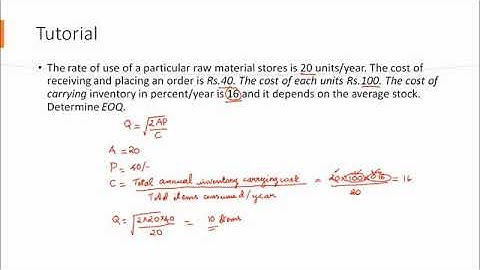 Tutorial
• The rate of use of a particular raw material stores is 20 units/year. The cost of
receiving and placing an order is Rs.40. The cost of each units Rs.100. The cost of
carrying inventory in percent/year is 16 and it depends on the average stock.
Determine EOQ.
Q = √2AP/C
A = 20
P = 40/-
C = Total annual inventory carrying cost / Total items consumed/year = 20×100×0.16 / 20 = 16
Q = √2×20×40/20 = 10 items